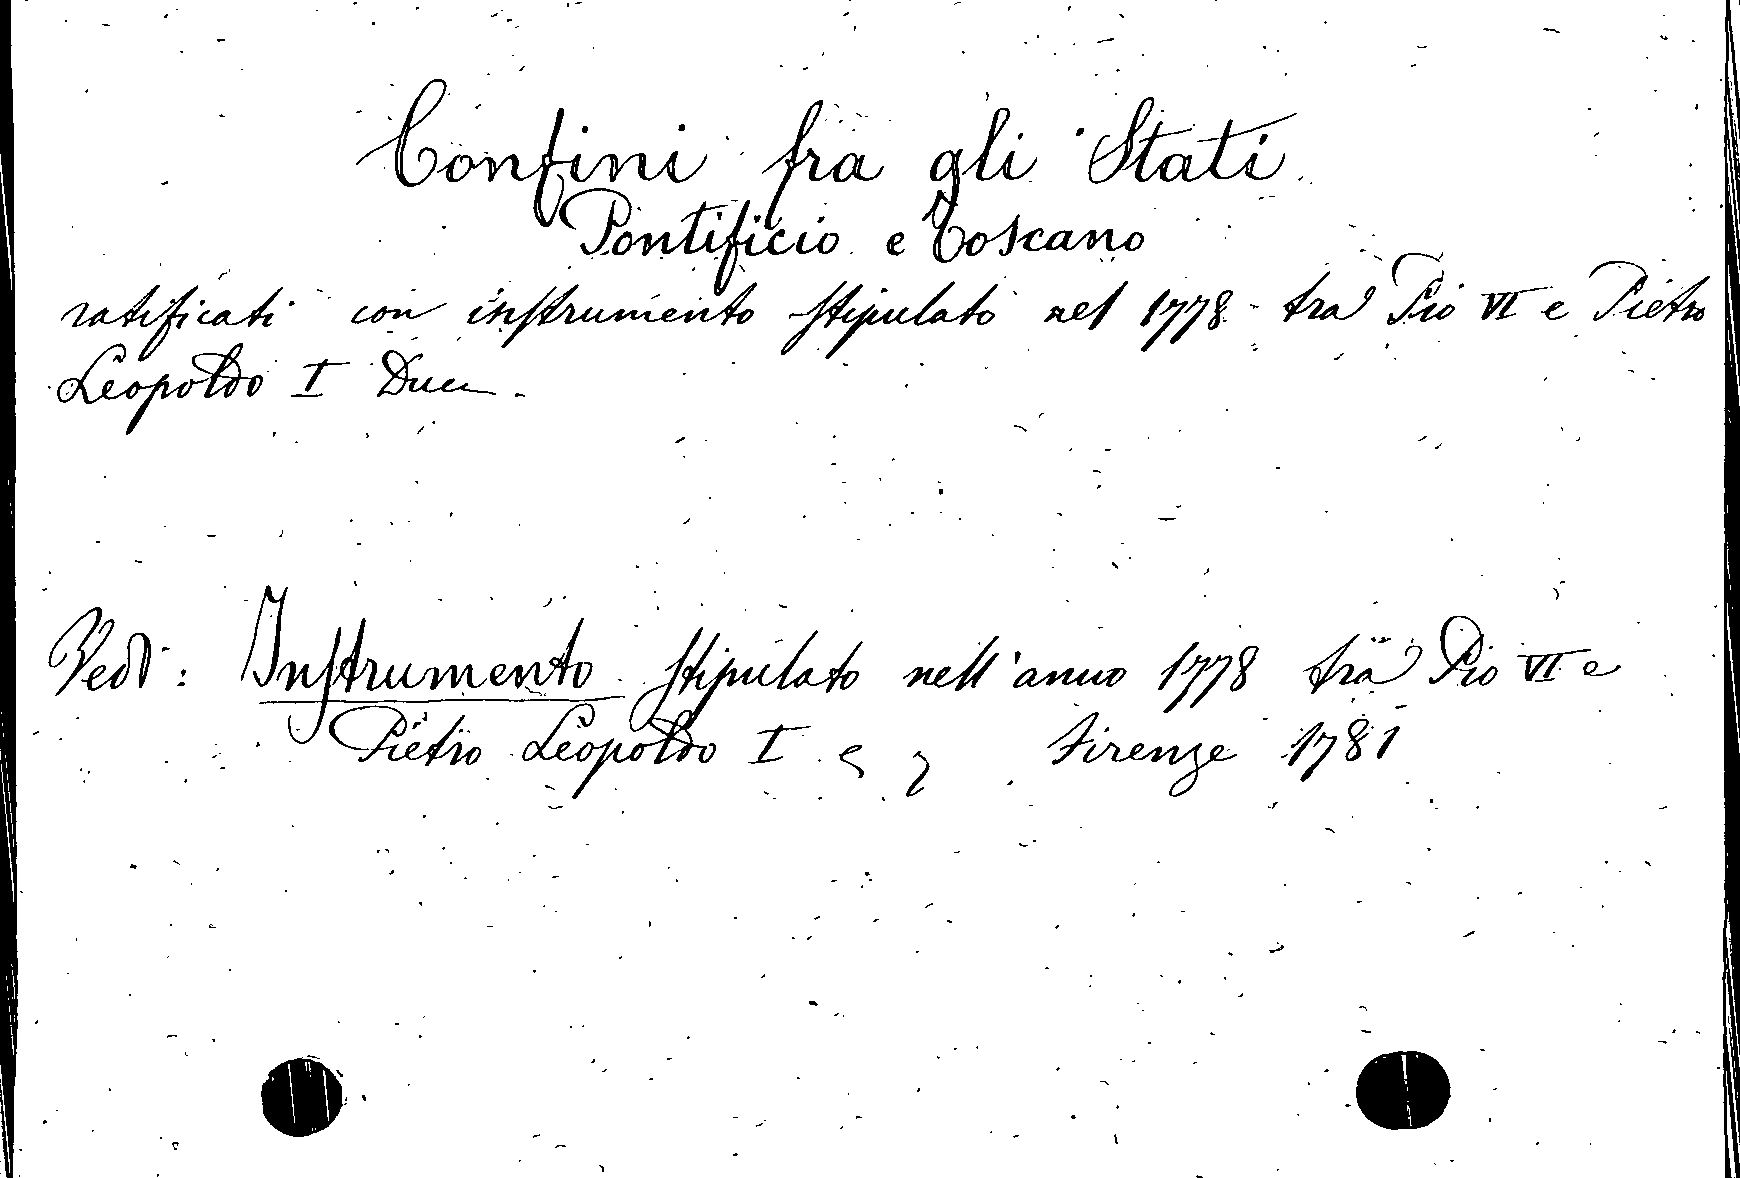 Confini fra gli Stati
Pontificio e Toscano
ratificati con instrumento stipulato nel 1778 tra Pio VI e Pietro
Leopoldo I Duca
Vedi: Instrumento stipulato nell'anno 1778 tra Pio VI e
Pietro Leopoldo I Firenze 1781